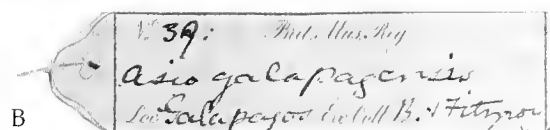 No 39: Brit. Mus. Reg
Asio galapagensis
Loc Galapagos Ex Coll B. & Fitzroy
B